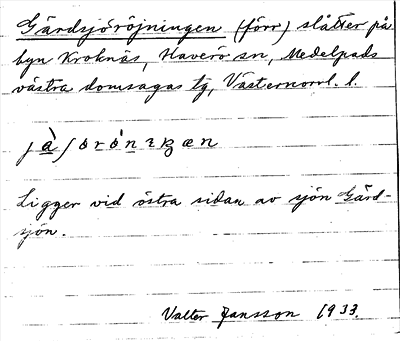 Gårdsjöröjningen (förr) slåtter på
byn Kroknäs, Haverö sn, Medelpads
västra domsagas tg, Västernorrl. l.
Ligger vid östra sidan av sjön Gård-
sjön.
Valter Jansson 1933.